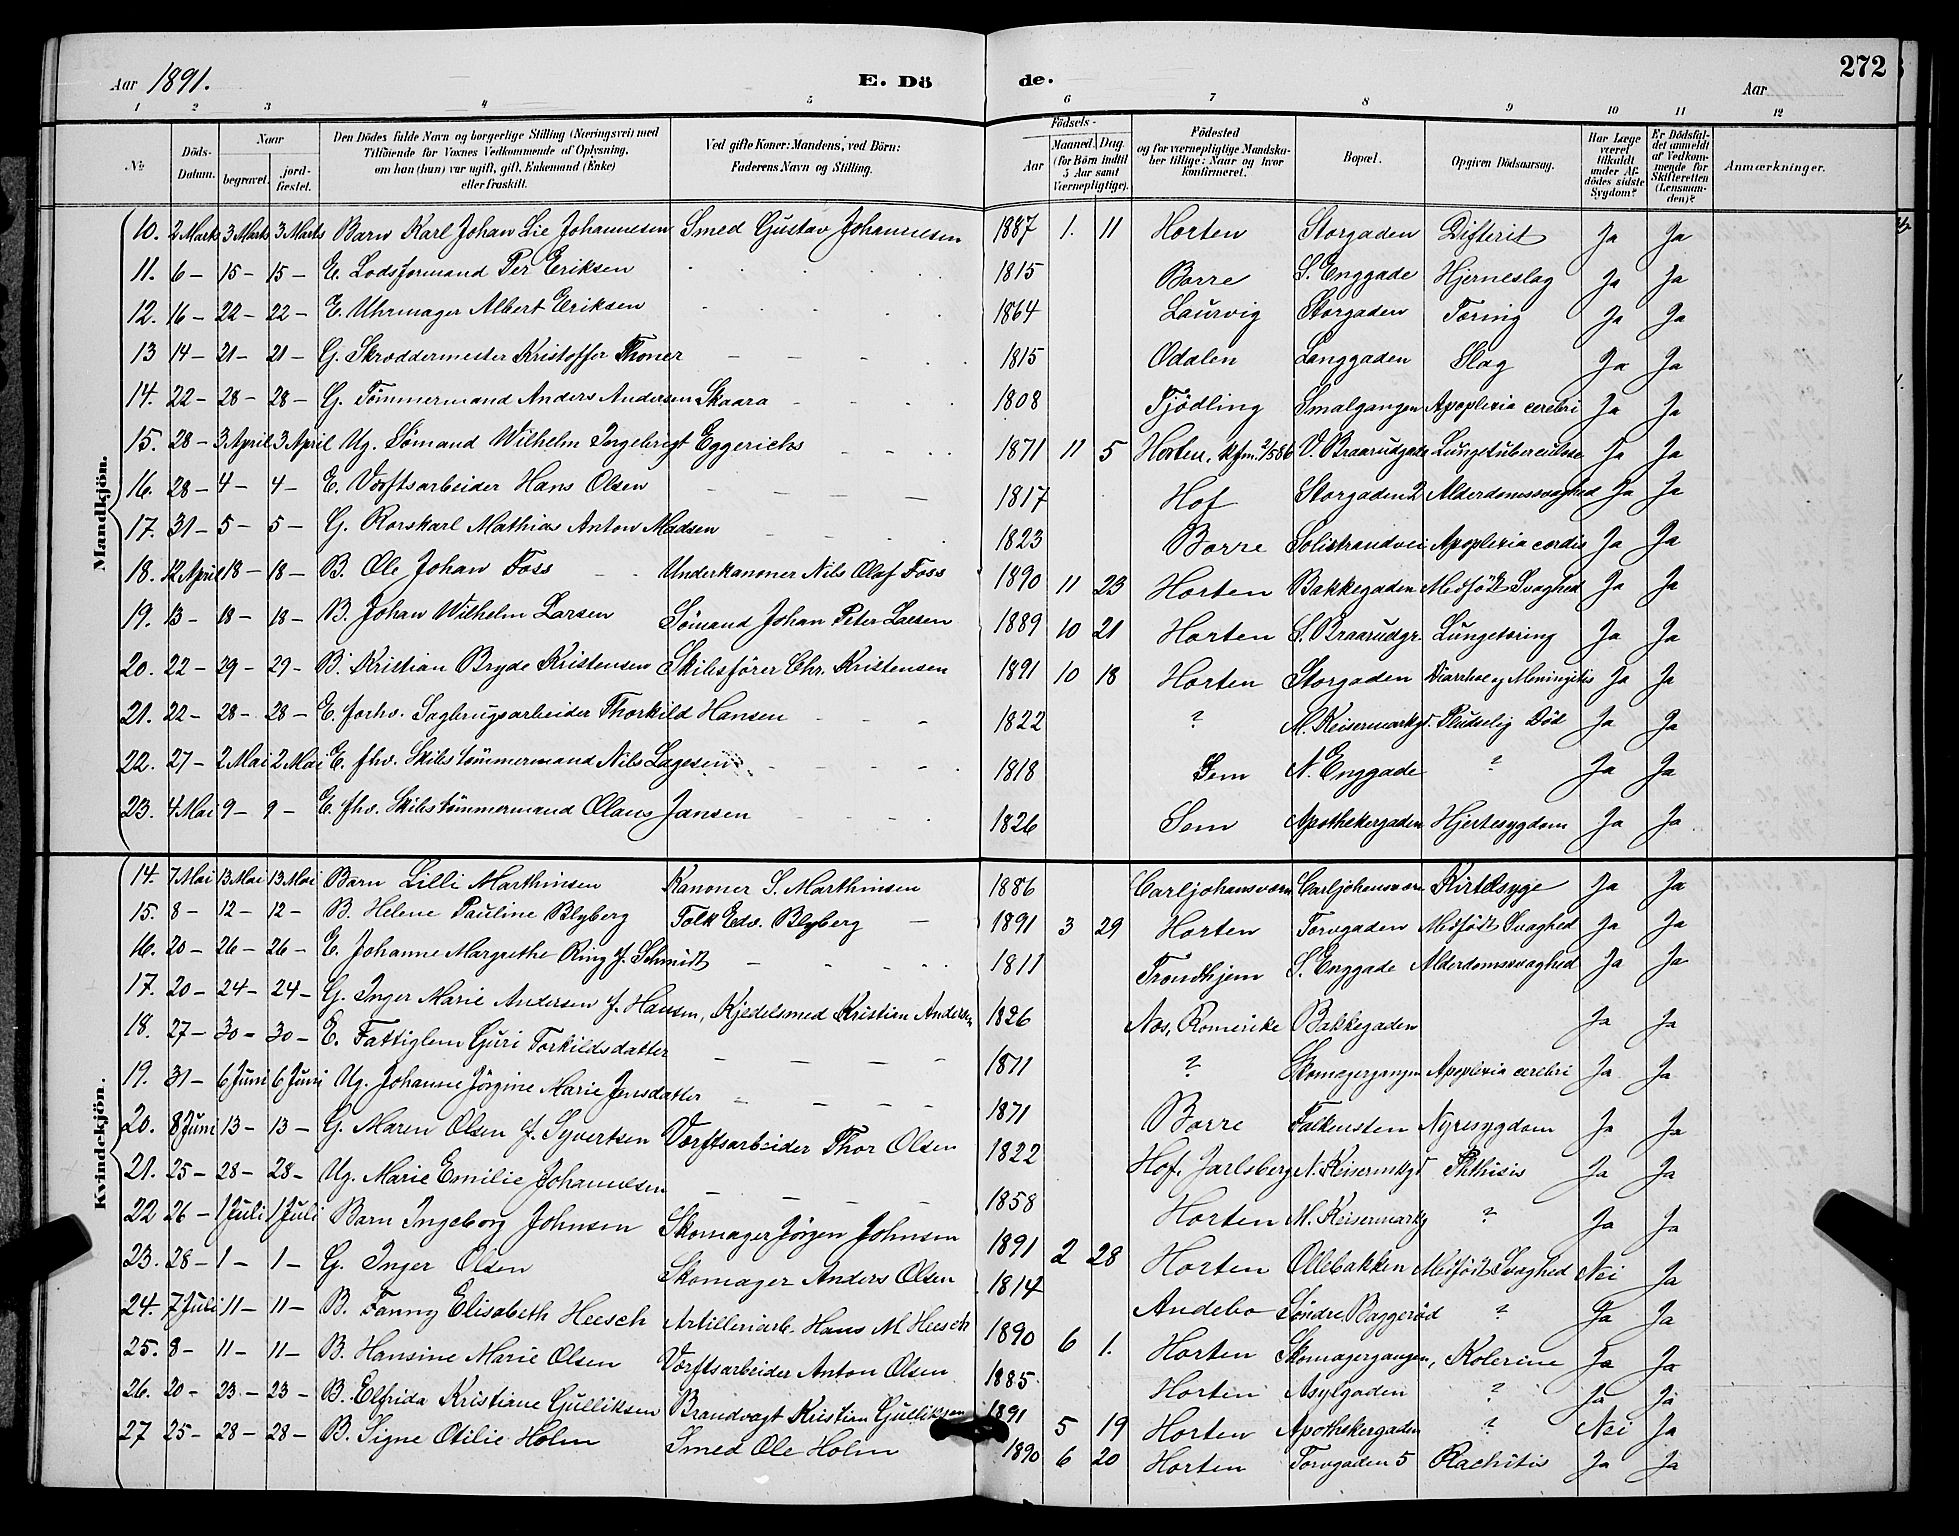 Aar 1891. E. Dö de. Aar 272
1 2 3 4 5 6 7 8 9 10 11 12
№ Döds-Datum. Naar begravet. jord-fæstet. Den Dödes fulde Navn og borgerlige Stilling (Næringsvei) med Tilföiende for Voxnes Vedkommende af Oplysning, om han (hun) var ugift, gift, Enkemand (Enke) eller fraskilt. Ved gifte Koner: Mandens, ved Börn: Faderens Navn og Stilling. Födsels- Aar Maaned. Dag. (for Börn indtil 5 Aar samt Værnepligtige). Födested og for værnepligtige Mandskaber tillige: Naar og hvor konfirmeret. Bopæl. Opgiven Dödsaarsag. Har Læge været tilkaldt under Afdödes sidste Sygdom? Er Dödsfaldet anmeldt af Vedkommende for Skifteretten (Lensmanden)? Anmærkninger.
Mandkjön.
10. 2 Marts 3 Marts 3 Marts Barn Karl Johan Lie Johannesen Smed Gustav Johannesen 1887 1. 11 Horten Storgaden Difterit Ja Ja
11. 6 – 15 – 15 – E. Lodsformand Per Eriksen 1815 Borre S. Enggade Hjerneslag Ja Ja
12. 16 – 22 – 22 – E. Uhrmager Albert Eriksen 1864 Laurvig Storgaden Tæring Ja Ja
13 14 – 21 – 21 – G. Skræddermester Kristoffer Thoner 1815 Odalen Langgaden Slag Ja Ja
14. 22 – 28 – 28 – G. Tømmermand Anders Andersen Skaara 1808 Tjödling Smalgangen Apoplexia cerebri Ja Ja
15. 28 – 3 April 3 April Ug. Sømand Wilhelm Ingebrigt Eggerichs 1871 11 5 Horten, kfm. 2/5 86 V. Braarudgade Lungetuberculose Ja Ja
16. 28 – 4 – 4 – E. Værftsarbeider Hans Olsen 1817 Hof Storgaden 2 Alderdomssvaghed Ja Ja
17. 31 – 5 – 5 – G. Rorskarl Mathias Anton Madsen 1823 Borre Solistrandvei Apoplexia cordis Ja Ja
18. 12 April 18 – 18 – B. Ole Johan Foss Underkanoner Nils Olaf Foss 1890 11 23 Horten Bakkegaden Medfödt Svaghed Ja Ja
19. 13 – 18 – 18 – B. Johan Wilhelm Larsen Sømand Johan Peter Larsen 1889 10 21 Horten S. Braarudgr. Lungetæring Ja Ja
20. 22 – 29 – 29 – B. Kristian Bryde Kristensen Skibsfører Chr. Kristensen 1891 10 18 Horten Storgaden Diarrhoe og Meningitis Ja Ja
21. 22 – 28 – 28 – E. forhv. Sagbrugsarbeider Thorkild Hansen 1822 ? M. Keisermarkgd. Pludselig Död Ja Ja
22. 27 – 2 Mai 2 Mai E. fhv. Skibstömmermand Nils Lagesen 1818 Sem N. Enggade ? Ja Ja
23. 4 Mai 9 – 9 – E. fhv. Skibstömmermand Olaus Jansen 1826 Sem Apothekergaden Hjertesygdom Ja Ja
Kvindekjön.
14. 7 Mai 13 Mai 13 Mai Barn Lilli Marthinsen Kanoner S. Marthinsen 1886 Carljohansværn Carljohansværn Kirtelsyge Ja Ja
15. 8 – 12 – 12 – B. Helene Pauline Blyberg Tolk Edv. Blyberg 1891 3 29 Horten Torvgaden Medfödt Svaghed Ja Ja
16. 20 – 26 – 26 – E. Johanne Margrethe Ring f. Schmidt 1811 Trondhjem S. Enggade Alderdomssvaghed Ja Ja
17. 20 – 24 – 24 – G. Inger Marie Andersen f. Hansen, Kjedelsmed Kristian Andersen 1826 Næs, Romerike Bakkegaden Ja Ja
18. 27 – 30 – 30 – E. Fattiglem Guri Torkildsdatter 1811 ? Skomagergangen Apoplexia cerebri Ja Ja
19. 31 – 6 Juni 6 Juni Ug. Johanne Jörgine Marie Jensdatter 1871 Borre Falkensten Nyresygdom Ja Ja
20. 8 Juni 13 – 13 – G. Maren Olsen f. Syvertsen Værftsarbeider Thor Olsen 1822 Hof, Jarlsberg N. Keisermkgd Phthisis Ja Ja
21. 25 – 28 – 28 – Ug. Marie Emilie Johannesen 1858 Horten M. Keisermarkg ? Ja Ja
22 26 – 1 Juli 1 Juli Barn Ingeborg Johnsen Skomager Jörgen Johnsen 1891 2 28 Horten Ollebakken Medfödt Svaghed Nei Ja
23. 28 – 1 – 1 – G. Inger Olsen Skomager Anders Olsen 1814 Andebo Søndre Baggeröd ? Ja Ja
24. 7 Juli 11 – 11 – B. Fanny Elisabeth Heesch Artilleriarb. Hans M Heesch 1890 6 1. Horten Skomagergangen, Kolerine Ja Ja
25. 8 – 11 – 11 – B. Hansine Marie Olsen Værftsarbeider Anton Olsen 1885 Horten Asylgaden ? Ja Ja
26. 20 – 23 – 23 – B. Elfrida Kristiane Gulliksen Brandvagt Kristian Gulliksen 1891 5 19 Horten Apothekergaden ? Nei Ja
27 25 – 28 – 28 – B. Signe Otilie Holm Smed Ole Holm 1890 6 20 Horten Torvgaden 5 Rachitis Ja Ja